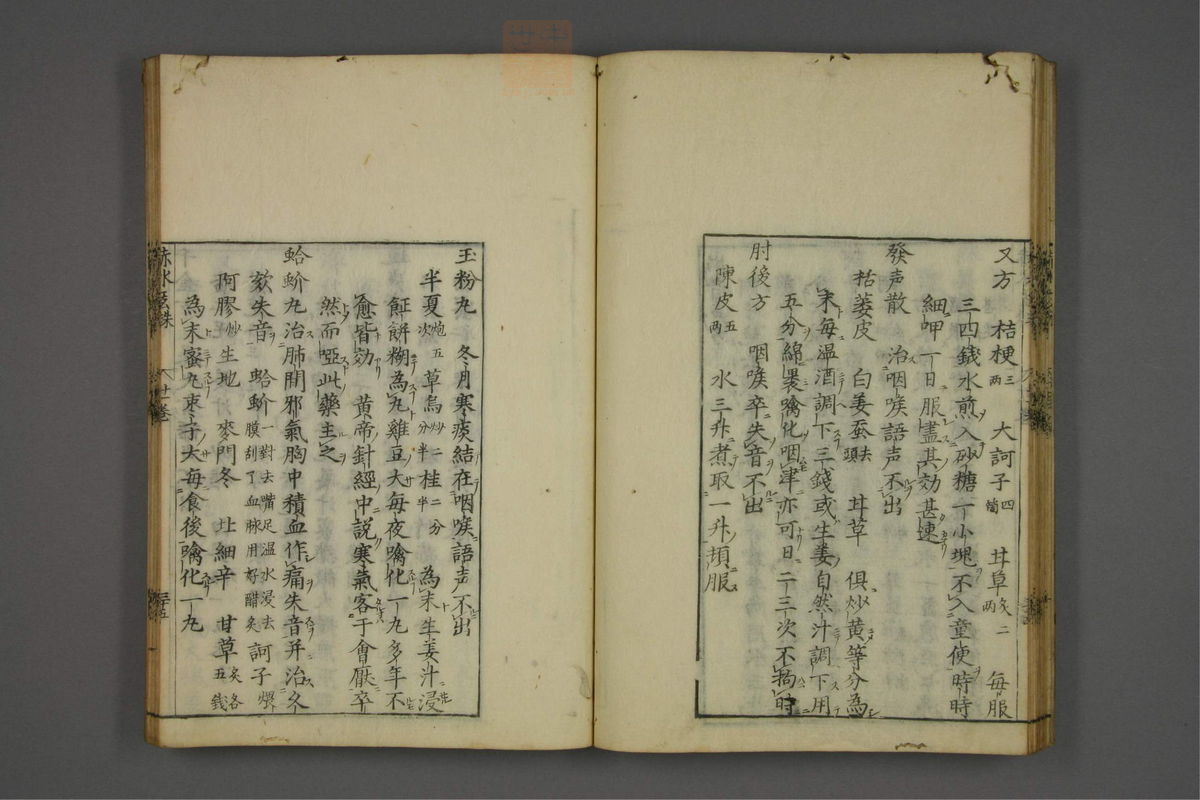 又方　桔梗三兩　大訶子四箇　甘草炙二兩　每服
三四錢水煎入砂糖一小塊不入童便時時
細呷一日服盡其効甚速
發声散　治咽喉語声不出
栝蔞皮　白姜蚕去頭　甘草　俱炒黄等分為
末每温酒調下三錢或生姜自然汁調下用
五分綿裹噙化咽津亦可日二三次不拘時
肘後方　咽喉卒失音不出
陳皮五兩　水三升煮取一升頻服
玉粉丸　冬月寒痰結在咽喉語声不出
半夏炮五次草烏炒二分半桂二分半　為末生姜汁浸
飪餅糊為丸雞豆大每夜噙化一丸多年不
愈皆効　黄帝針經中説寒氣客于會厭卒
然而啞此藥主之
蛤蚧丸治肺間邪氣胸中積血作痛失音并治久
欬失音　蛤蚧一對去嘴足温水浸去膜刮了血脉用好醋炙訶子煨
阿膠炒生地　麥門冬　北細辛　甘草炙各五錢
為末蜜丸枣子大每食後噙化一丸
赤水玄珠